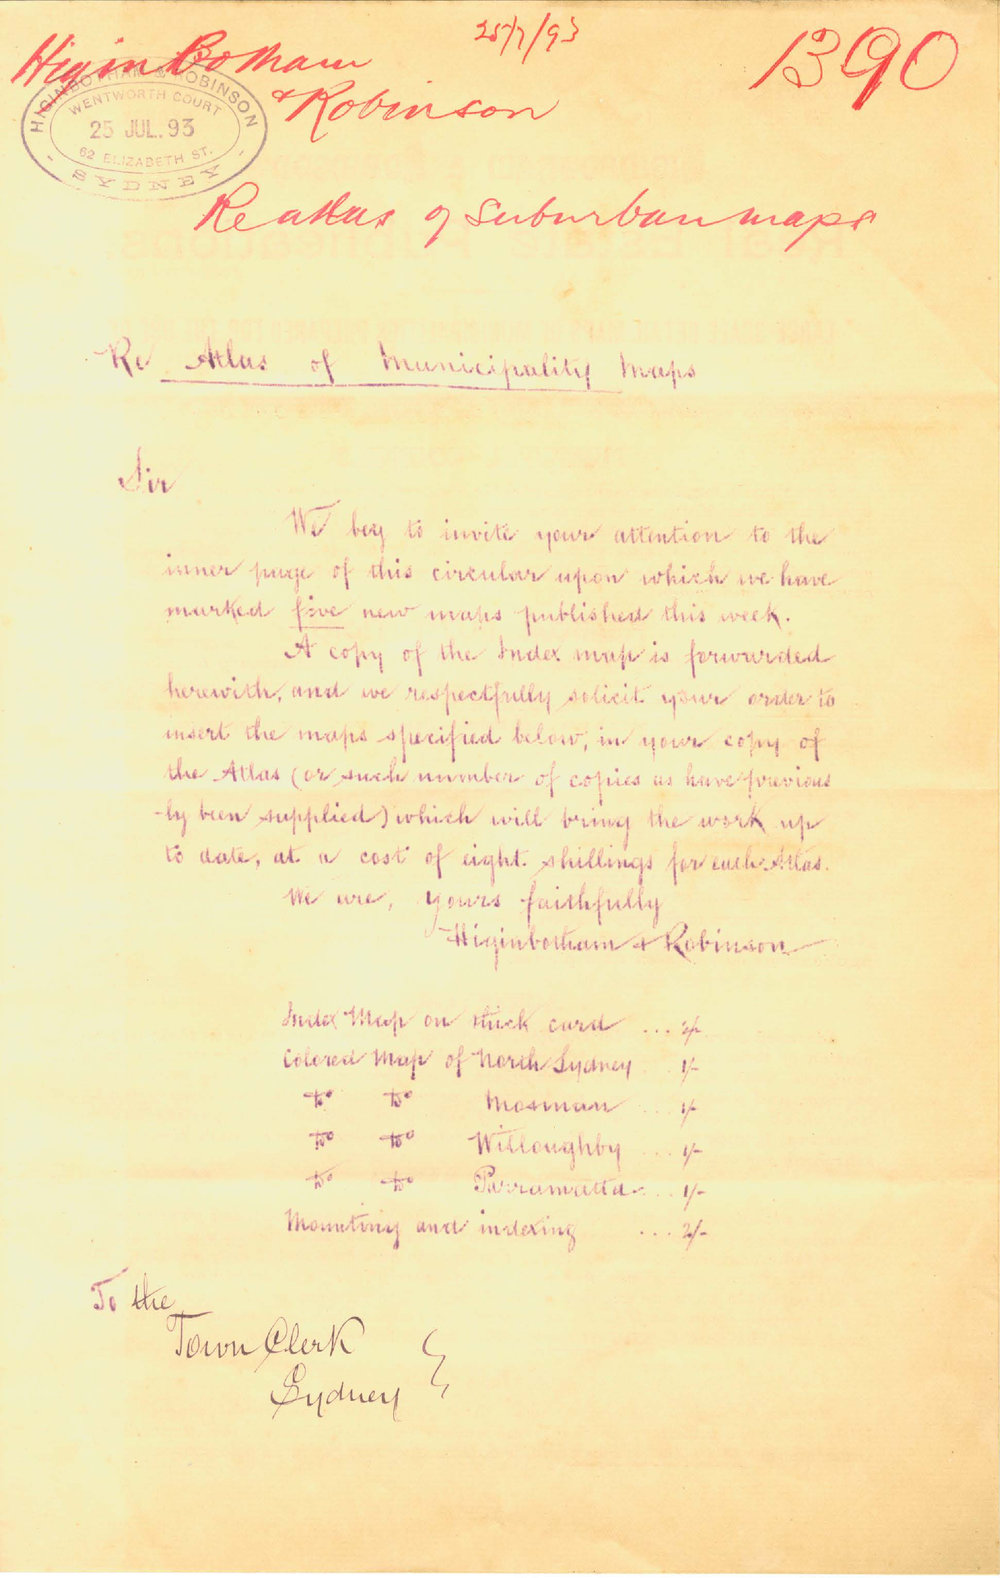 25/7/93
1390
Higinbotham
& Robinson
HIGINBOTHAM & ROBINSON
WENTWORTH COURT
25 JUL. 93
62 ELIZABETH ST.
SYDNEY
Re atlas of Suburban maps
Re Atlas of Municipality Maps
Sir
We beg to invite your attention to the
inner page of this circular upon which we have
marked five new maps published this week.
A copy of the Index map is forwarded
herewith, and we respectfully solicit your order to
insert the maps specified below, in your copy of
the Atlas (or such number of copies as have previous
-ly been supplied) which will bring the work up
to date, at a cost of eight shillings for each Atlas.
We are, yours faithfully
Higinbotham & Robinson
Index Map on thick card ... 2/-
Colored Map of North Sydney ... 1/-
Do Do Mosman ... 1/-
Do Do Willoughby ... 1/-
Do Do Parramatta ... 1/-
Mounting and indexing ... 2/-
To the
Town Clerk
Sydney